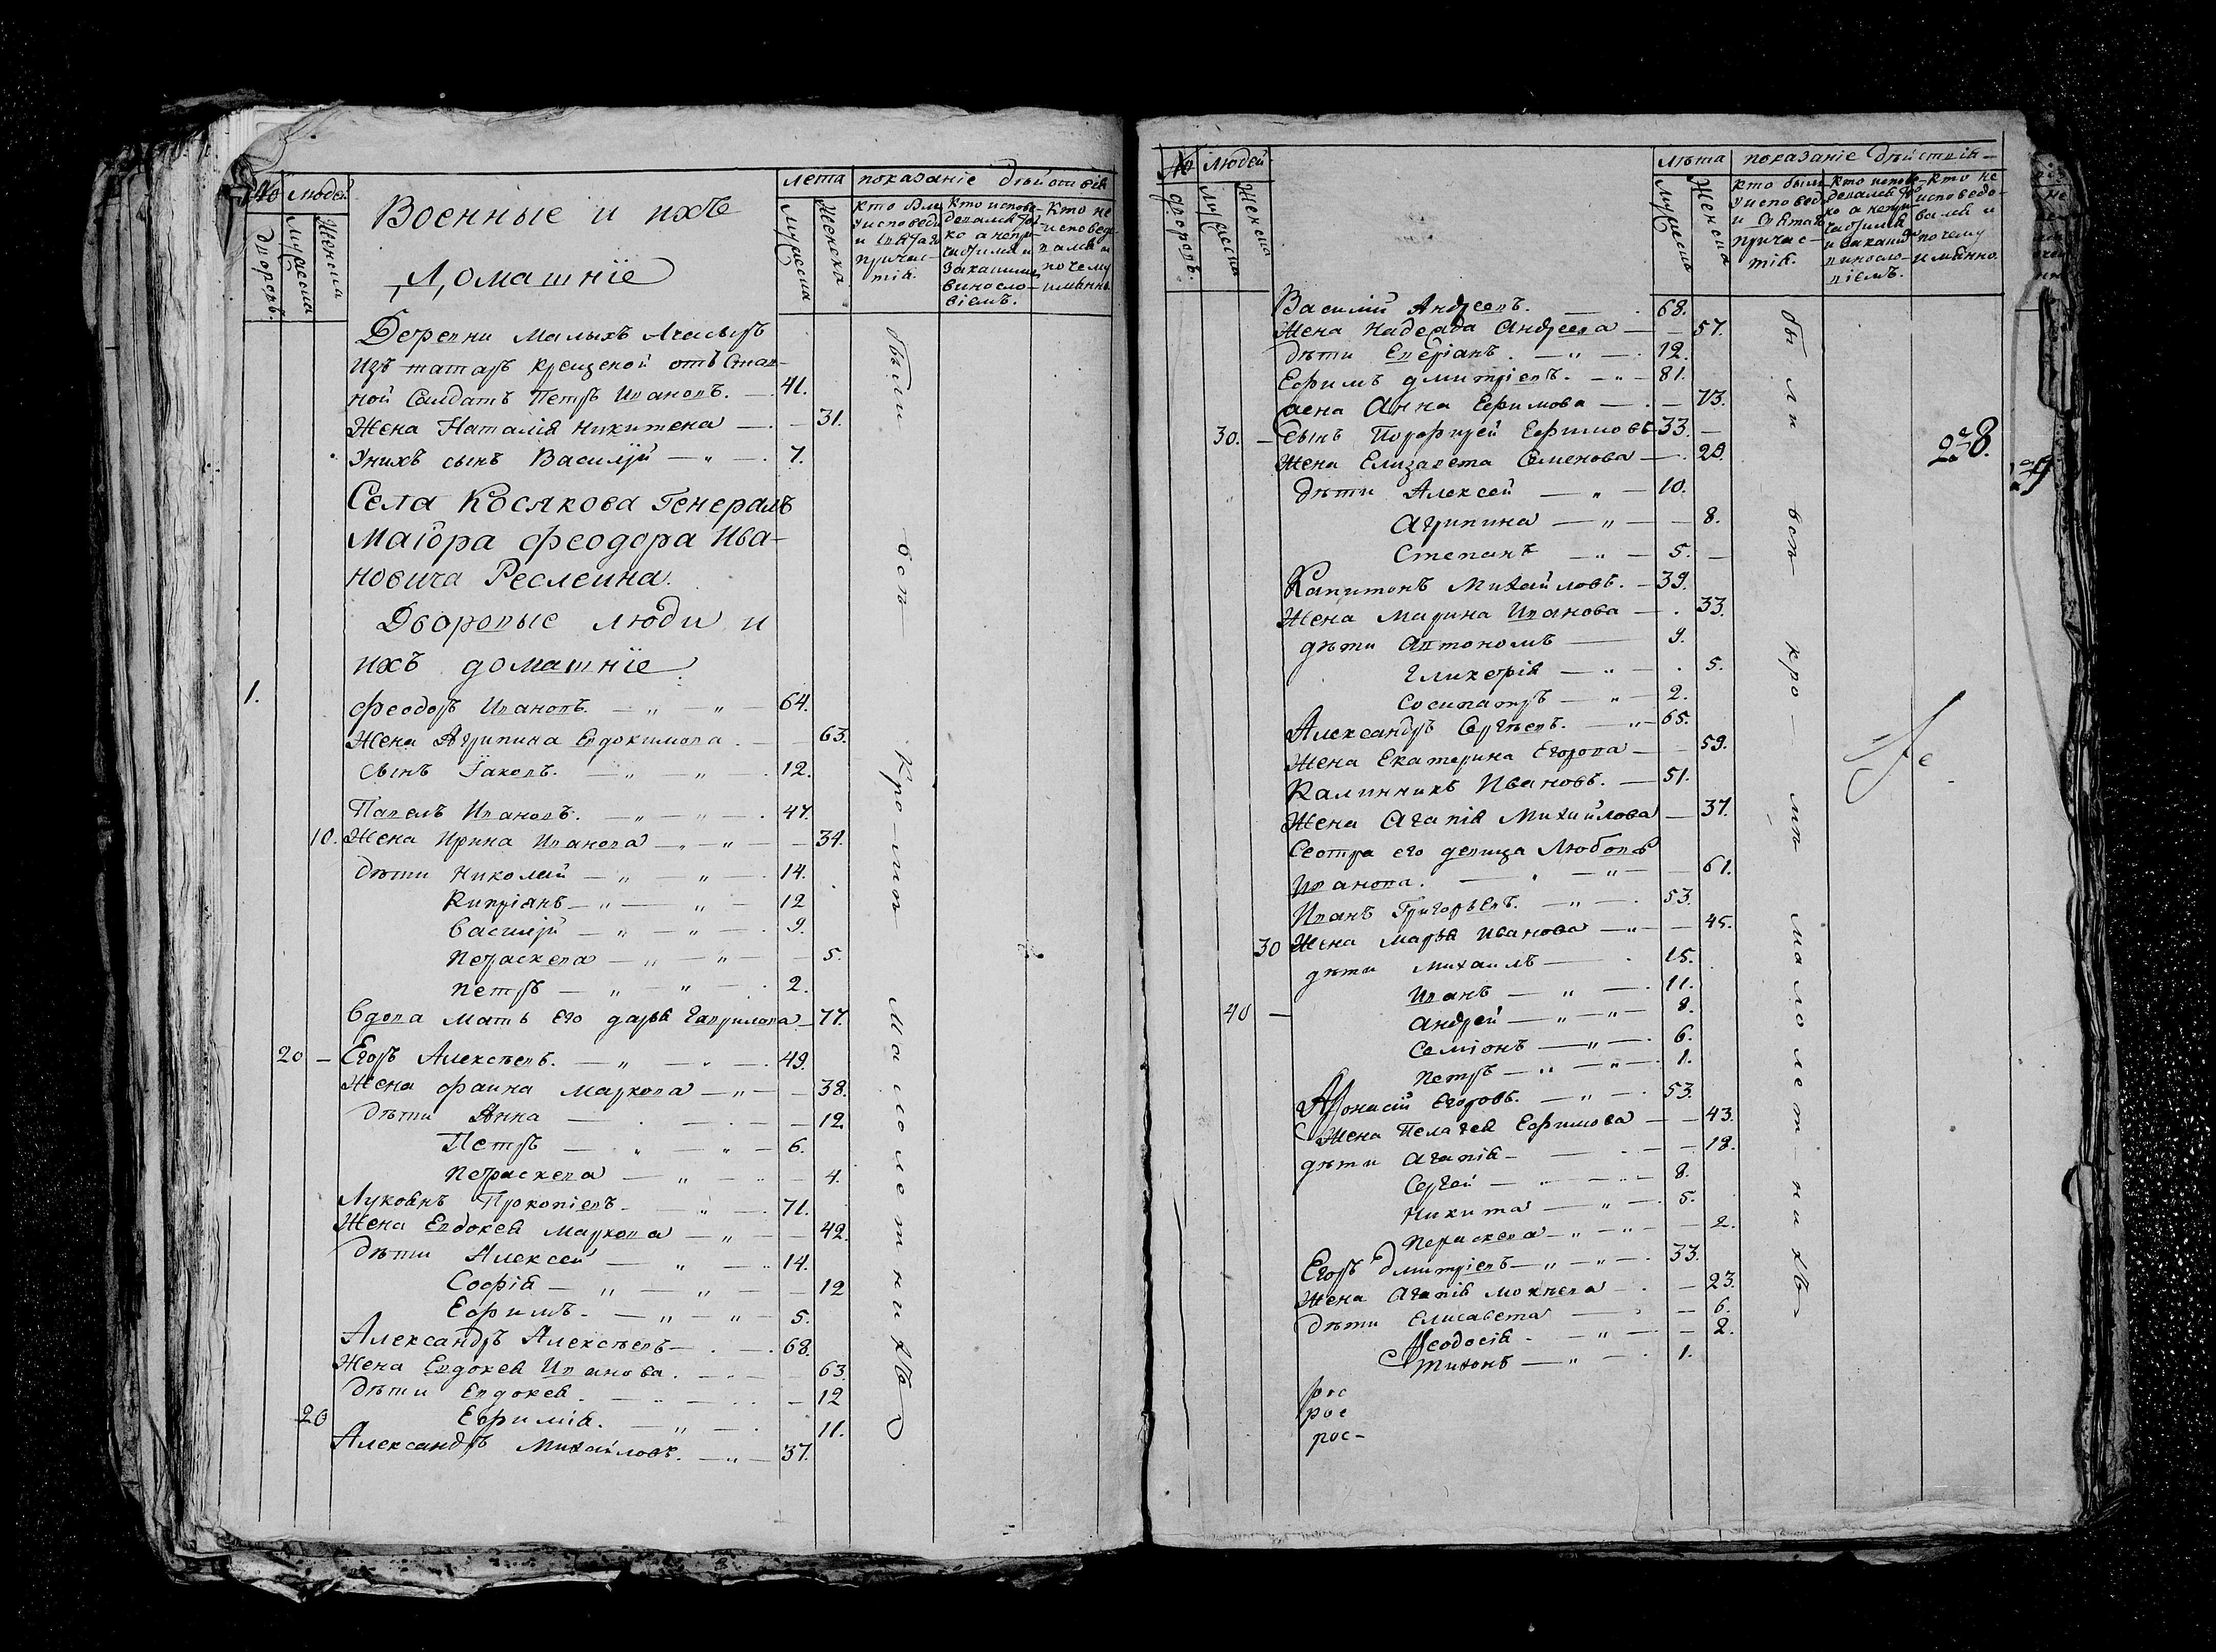 № людей
дворовъ.
Мужеска
Женска
Военные и ихъ
Домашніе
лета
Мужеска
Женска
показаніе дѣйствія
кто был у исповеди и святаго причастія.
Кто исповедался только а не причастился и за каким винословіемъ.
Кто не исповедался и почему имянно.
Деревни Малыхъ
Изъ татаръ крещеной отъ Став-
ной Салдатъ Петръ Ивановъ. — 41.
Жена Наталія Никитена — 31.
У нихъ сынъ Василій — „ — 7.
Села Косякова Генералъ
Маіора Феодора Ива-
новича
Дворовые люди и
ихъ домашніе
1. Феодоръ Ивановъ. — „ — „ — 64.
Жена Агрипина Евдокимова. — 63.
Сынъ Іаковъ. — „ — „ — 12.
Павелъ Ивановъ. — „ — „ — 47.
10. Жена Ирина Иванова — „ — „ — 34.
Дѣти Николай — „ — „ — 14.
Кипріянъ — „ — „ — 12
Василій — „ — „ — 9.
Пераскева — „ — „ — 5.
Петръ — „ — „ — 2.
Вдова Мать Его Дарья Гаврилова — 77.
20 — Егоръ Алексѣевъ. — „ — 49.
Жена Фаина Маркова — „ — 38.
Дѣти Анна — 12.
Петръ — „ — „ — 6.
Пераскева — „ — 4.
Лукоянъ Прокопіевъ — „ — 71.
Жена Евдокея Маркова — „ — 42.
Дѣти Алексей — „ — 14.
Софія — „ — „ — 12
Ефимъ. — „ — „ — 5.
Александръ Алексѣевъ — 68.
Жена Евдокея Иванова. — 63.
Дѣти Евдокея. — 12
20 Ефимія. — „ — 11.
Александръ Михайловъ. — „ — 37.
были всѣ Кромѣ Малолетнихъ
№ людей
дворовъ.
Мужеска
Женска
лѣта
Мужеска
Женска
показаніе дѣйствія
кто былъ у исповеди и святаго причастія.
Кто исповедался только а не причастился и за каким винословіемъ.
Кто не исповедовался и почему имянно.
Василій Андреевъ. — 68.
Жена Надежда Андреева — 57.
Дѣти — „ — 12.
Ефимъ Дмитріевъ. — „ — 81.
жена Анна Ефимова — 73.
30. — Сынъ Порфирей Ефимовъ — 33. —
Жена Елизавета Семенова — 29.
Дѣти Алексей — „ — 10.
Агрипина — „ — 8.
Степанъ — „ — 5. —
Капитонъ Михайловъ. — 39.
Жена Марина Иванова — 33.
дѣти Автономъ — 9.
Гликерія — „ — 5.
Сосипатръ — „ — 2.
Александръ Сергѣевъ. — „ — 65.
Жена Екатерина Егорова — 59.
Калинникъ Ивановъ. — 51.
Жена Агапія Михайлова — 37.
Сестра его девица Любовь
Иванова. — „ — 61.
Иванъ Григорьевъ. — „ — 53.
30 Жена Марья Иванова — „ — 45.
дѣти Михаилъ — 15.
Иванъ — „ — 11.
40 — Андрей — „ — „ — 8.
Семіонъ — „ — 6.
Петръ — „ — „ — 1.
Афонасій Егоровъ. — „ — 53.
Жена Пелагея Ефимова — 43.
дѣти Агапія — 18.
Сергей — „ — 8.
Никита — „ — 5.
Пераскева — „ — „ — 2.
Егоръ Дмитріевъ — „ — „ — 33.
Жена Агапія — 23.
Дѣти Елисавета — 6.
Феодосія — „ — 2.
Тихонъ — „ — 1.
рос
рос
рос-
были всѣ кромѣ малолетнихъ
28.